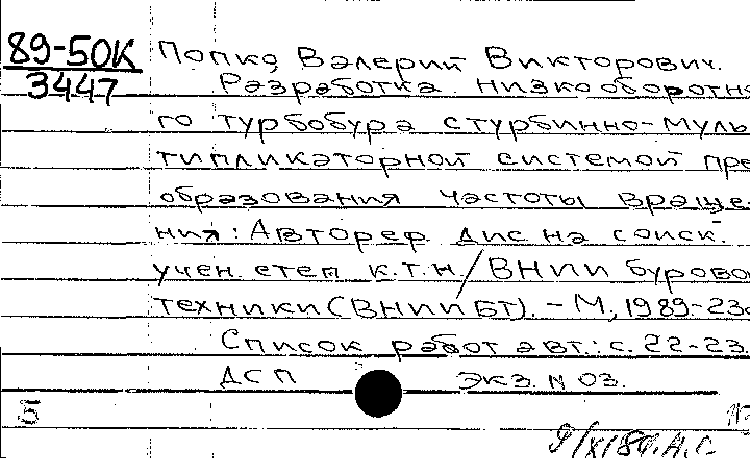 89-50К
3447
Попко, Валерий Викторович.
Разработка низкооборотно-
го турбобура с турбинно-муль
типликаторной системой пре
образования частоты враще-
ния: Автореф. дис на соиск.
учен. степ к.т.н. / ВНИИ бурово
техники (ВНИИБТ). – М, 1989-23с
Список работ авт.: с. 22-23.
ДСП экз. N 03.
5